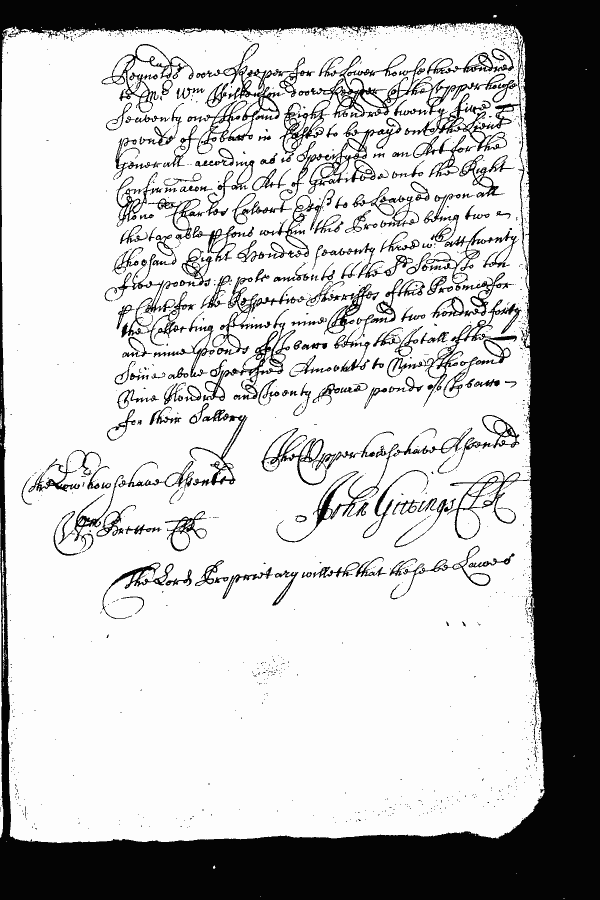 Reynolds doore Keeper for the Lower howse three hundred
to Mr. Wm Wilkenson doore Keeper of the Upper howse
Seaventy one thousand Eight hundred twenty five
pounds of Tobaco in Caske to be payd unto the Lieut
Generall according as is Specifyed in an Act for the
Confirmacon of an Act of Gratitude unto the Right
Honoble Charles Calvert Esqr to be Leavyed upon all
the taxable psons within this Province being two
thousand Eight Hundred seaventy three wch att twenty
five pounds p pole amounts to the Sd Some To ten
p Cent for the Respective Sherriffes of this Province for
the Collecting of ninety nine thousand two hundred forty
and nine pounds of Tobacco being the totall of the
Some above Specifyed Amounts to Nine thousand
Nine Hundred and Twenty foure pounds of Tobacco
for their Sallery
The Upper howse have Assented
The Lowr howse have Assented
John Gittings Clk
Wm Bretton Clk
The Lord Proprietary willeth that these be Lawes